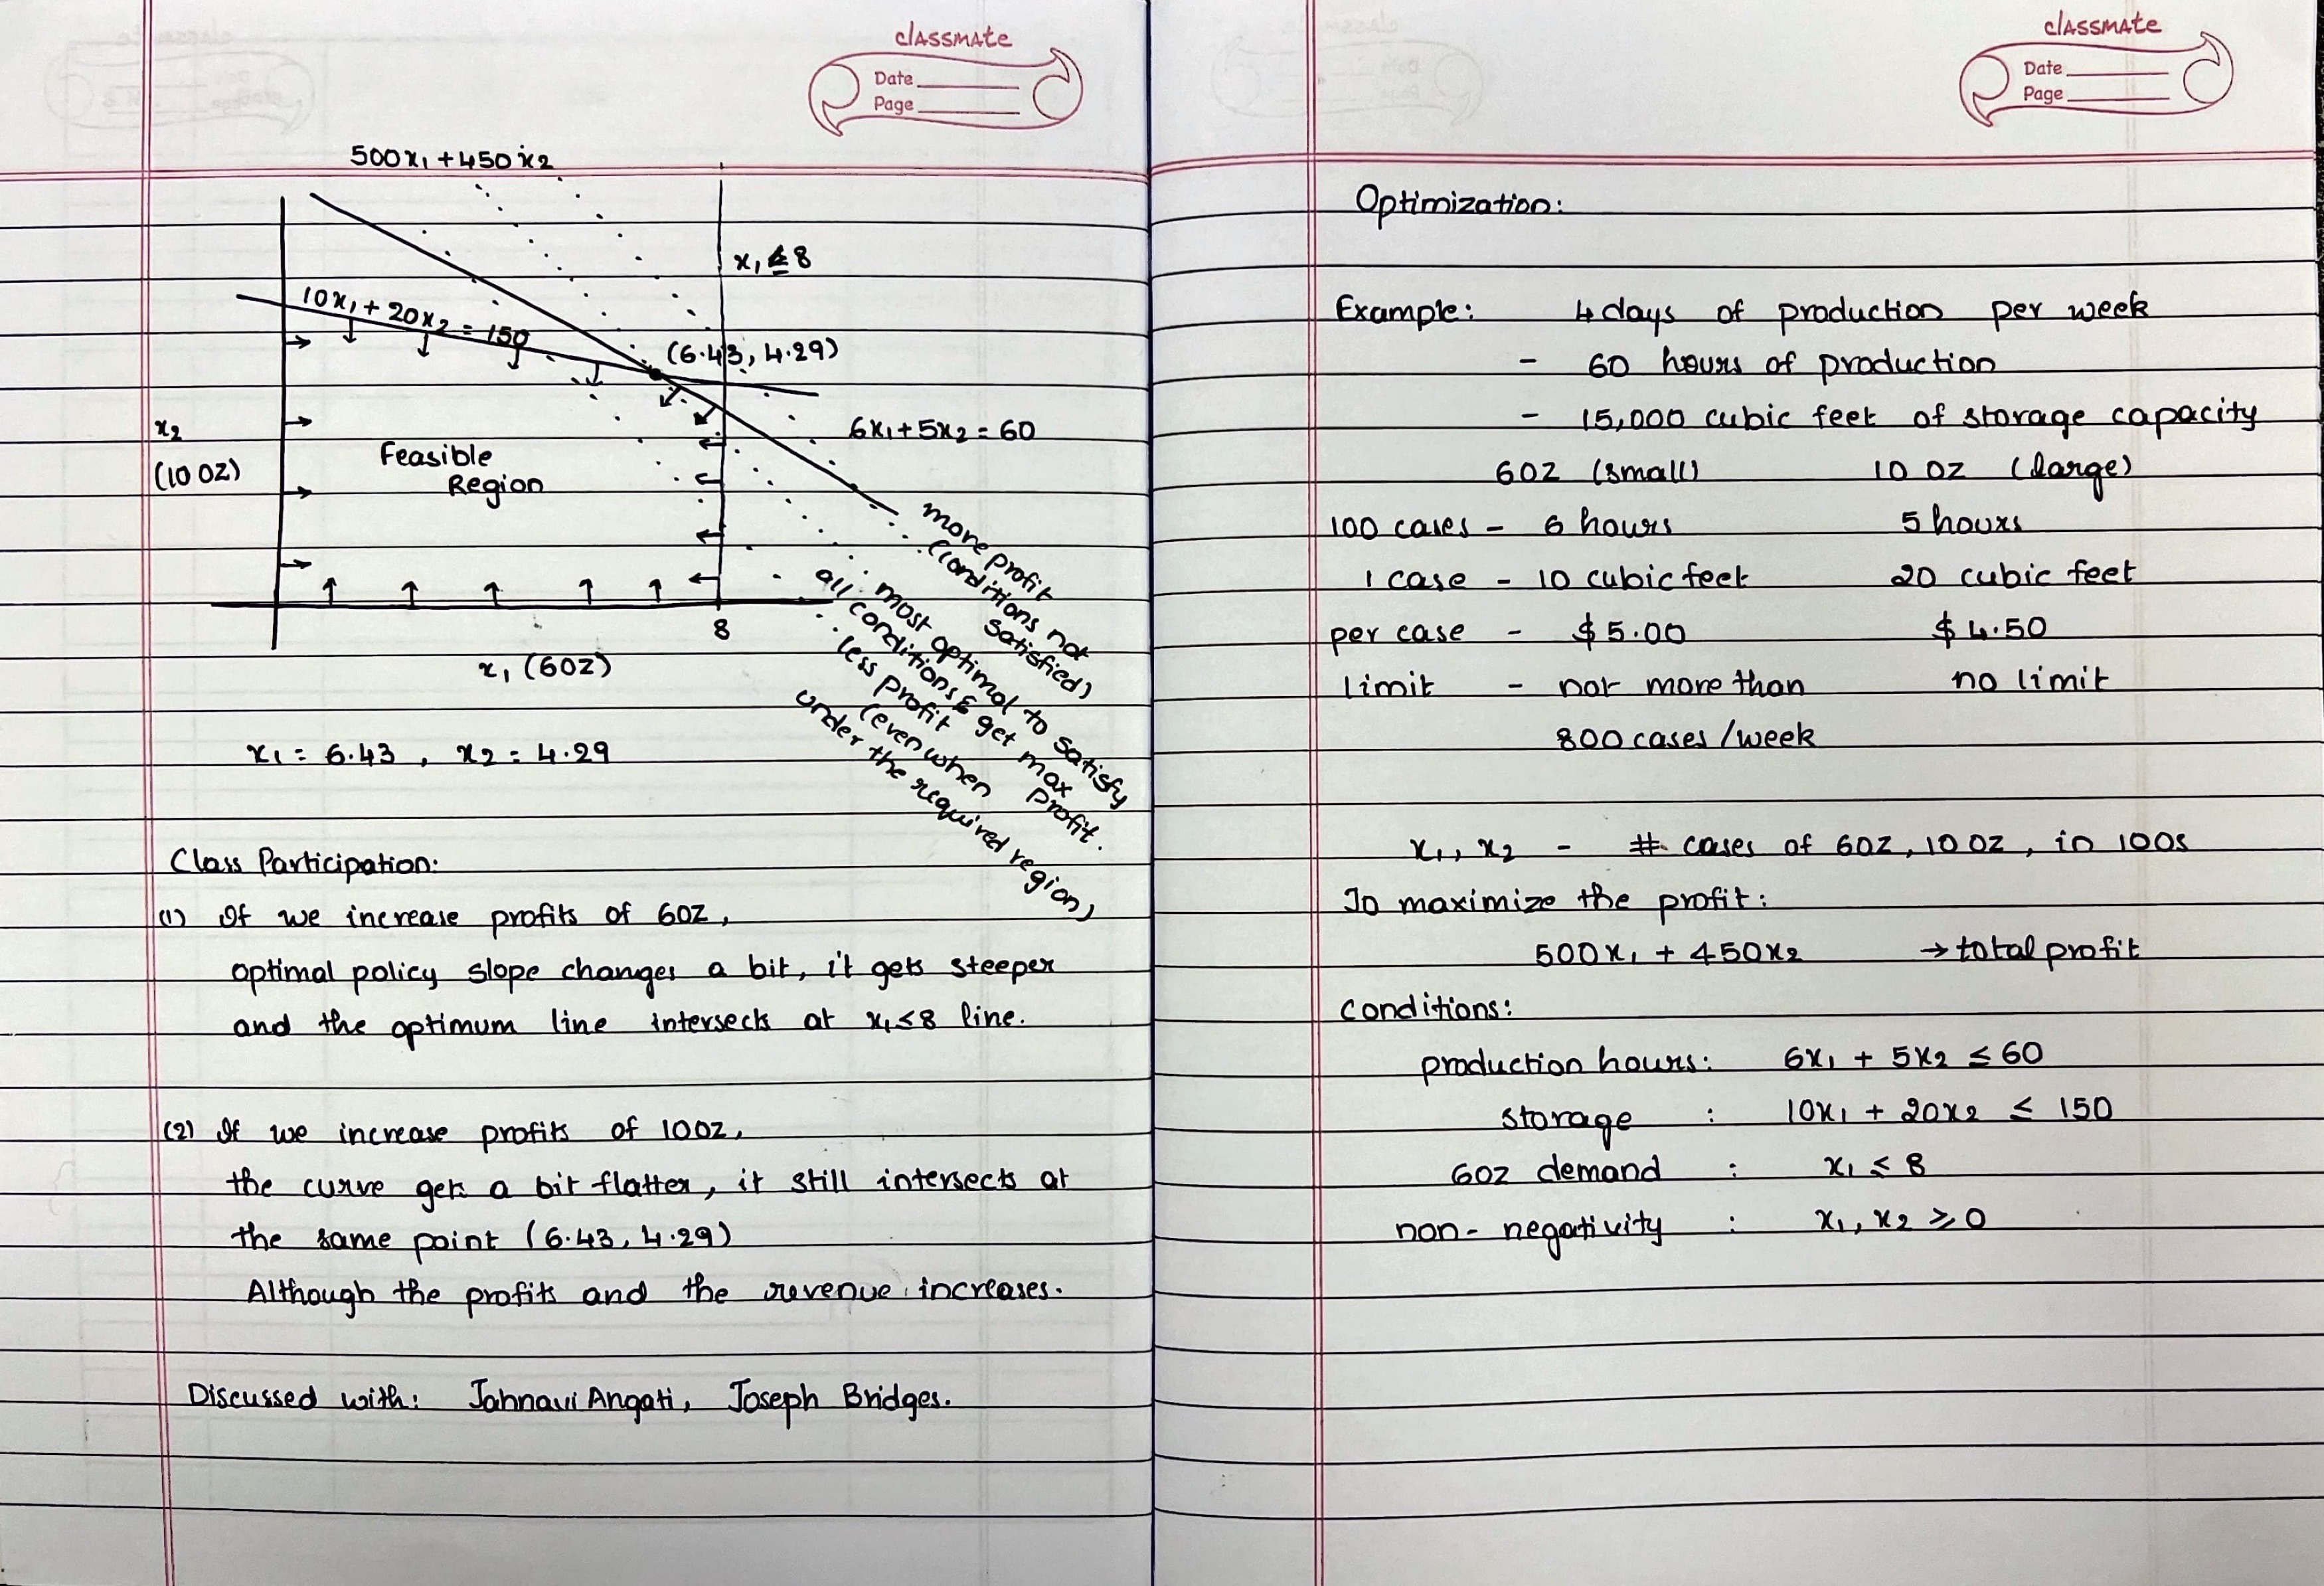 classmate
Date
Page
500x₁ + 450x₂
x₁ ≤ 8
10x₁ + 20x₂ = 150
(6.43, 4.29)
6x₁ + 5x₂ = 60
x₂
(10 OZ)
Feasible
Region
8
x₁ (6OZ)
more profit
(conditions not
satisfied)
most optimal to satisfy
all conditions & get max
profit.
less profit
(even when
under the required region)
x₁ = 6.43 , x₂ = 4.29
Class Participation:
(1) If we increase profits of 6OZ,
optimal policy slope changes a bit, it gets steeper
and the optimum line intersects at x₁≤8 line.
(2) If we increase profits of 10OZ,
the curve gets a bit flatter, it still intersects at
the same point (6.43, 4.29)
Although the profits and the revenue increases.
Discussed with: Jahnavi Angati, Joseph Bridges.
classmate
Date
Page
Optimization:
Example: 4 days of production per week
- 60 hours of production
- 15,000 cubic feet of storage capacity
6OZ (small) 10 OZ (large)
100 cases - 6 hours 5 hours
1 case - 10 cubic feet 20 cubic feet
per case - $5.00 $4.50
limit - not more than no limit
800 cases/week
x₁, x₂ - # cases of 6OZ, 10 OZ, in 100s
To maximize the profit:
500x₁ + 450x₂ → total profit
Conditions:
production hours: 6x₁ + 5x₂ ≤ 60
storage : 10x₁ + 20x₂ ≤ 150
6OZ demand : x₁ ≤ 8
non-negativity : x₁, x₂ ≥ 0